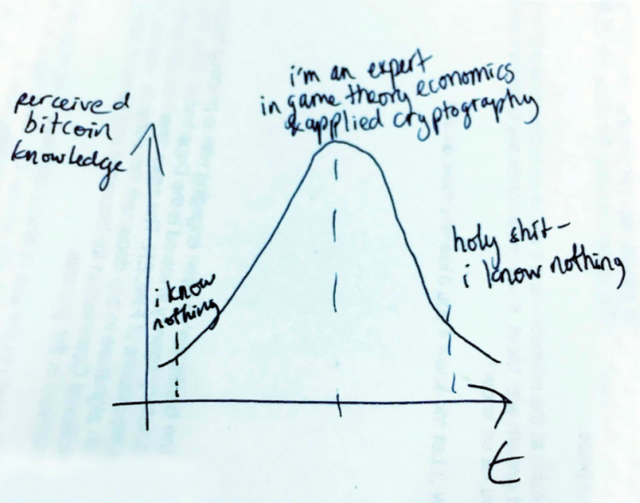 perceived
bitcoin
knowledge
i'm an expert
in game theory economics
& applied cryptography
i know
nothing
holy shit -
i know nothing
t